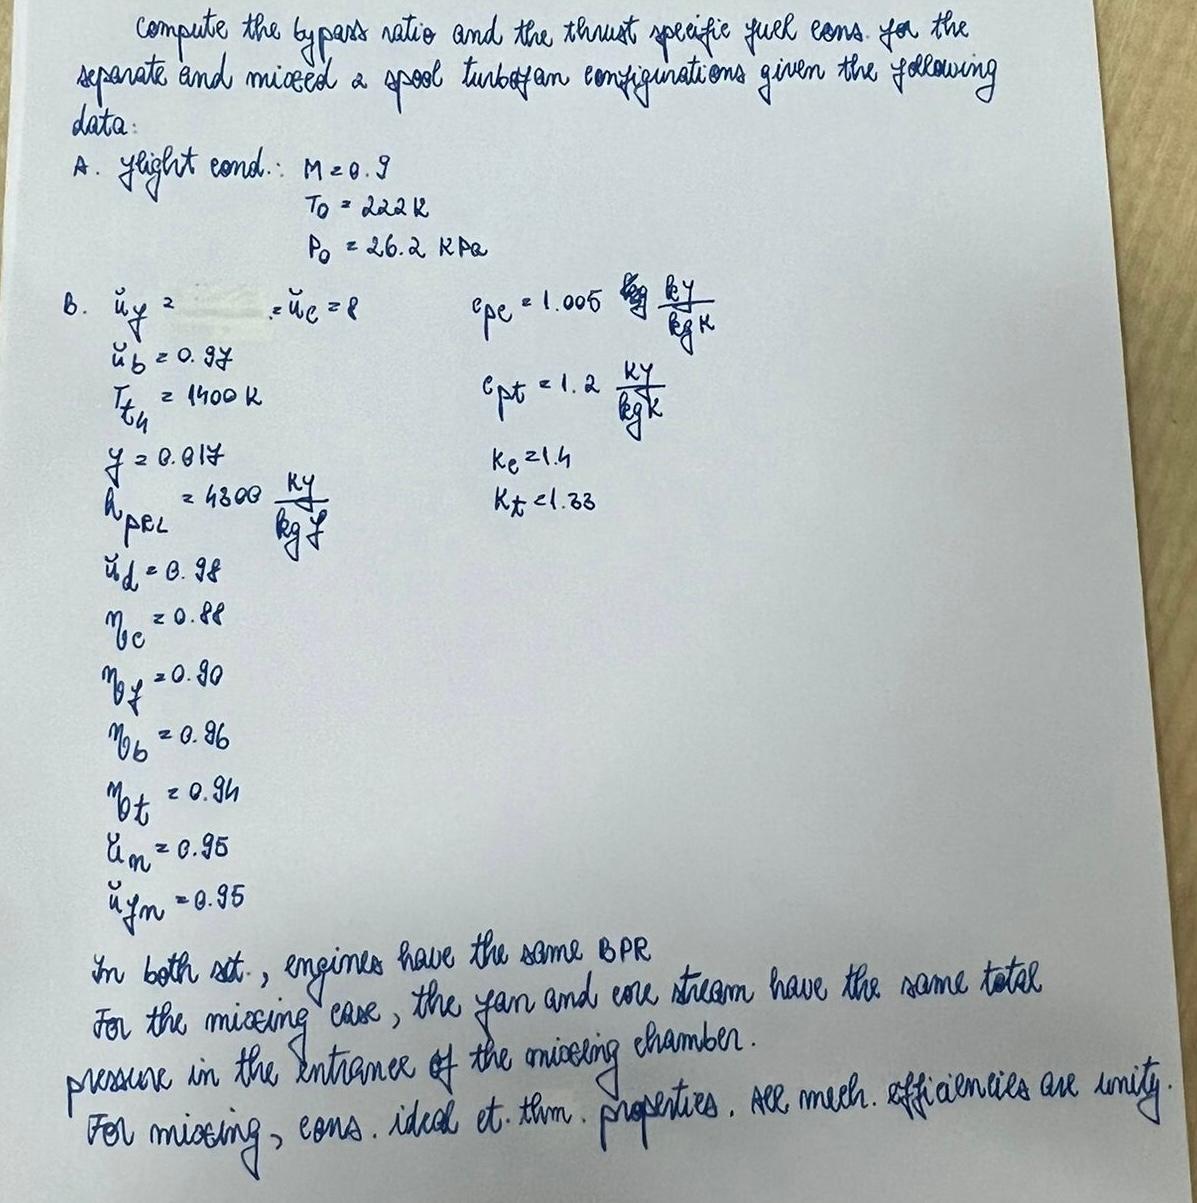 Compute the bypass ratio and the thrust specific fuel cons. for the
separate and mixed 2 spool turbofan configurations given the following
data:
A. flight cond.: M = 0.9
T₀ = 222 K
P₀ = 26.2 KPa
B. ŭ_f = = ŭ_c = 8 c_pc = 1.005 kJ/kg K
ŭ_b = 0.97
T_t4 = 1400 K c_pt = 1.2 KJ/kg K
f = 0.017 K_c = 1.4
h_PRL = 4300 KJ/kg f K_t = 1.33
ŭ_d = 0.98
η_c = 0.88
η_f = 0.90
η_b = 0.96
η_t = 0.94
ŭ_n = 0.95
ŭ_fn = 0.95
In both sit., engines have the same BPR
For the mixing case, the fan and core stream have the same total
pressure in the entrance of the mixing chamber.
For mixing, cons. ideal et. thm. properties. All mech. efficiencies are unity.